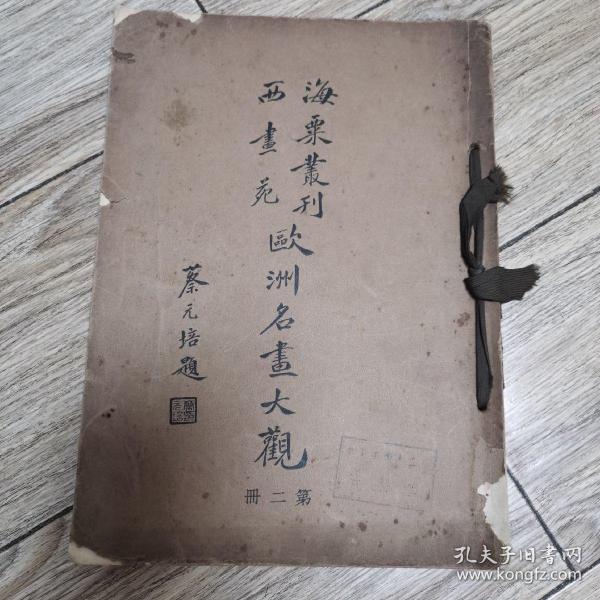 海粟叢刊
西畫苑
歐洲名畫大觀
蔡元培題
第二冊
孔夫子旧书网
www.kongfz.com